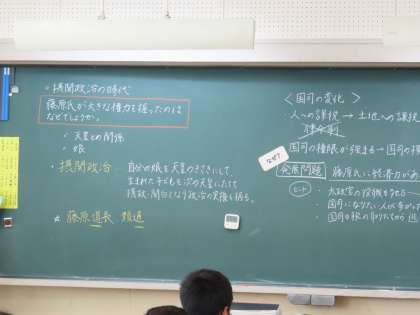 ・摂関政治の時代
藤原氏が大きな権力を握ったのは
なぜでしょうか。
✓ 天皇との関係
✓ 娘
・摂関政治 … 自分の娘を天皇のきさきにして、
生まれた子どもを次の天皇にたて
摂政・関白となり政治の実権を握る。
☆ 藤原道長、頼通
＜国司の変化＞
人への課税 → 土地への課税
国司の権限が強まる → 国司の
なぜ?
発展問題 藤原氏に経済力があ
ヒント
・太政官の役職を
・国司になりたい人が
・国司が